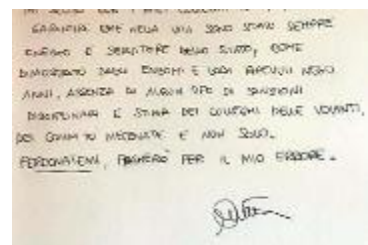 MI SCUSO CON I MIEI
GARANTIRE CHE NELLA VITA SONO STATO SEMPRE
E SERVITORE DELLO STATO, COME
DIMOSTRATO DAGLI ENCOMI E LODI AVUTI NEGLI
ANNI, ASSENZA DI ALCUN TIPO DI SANZIONI
DISCIPLINARI E STIMA DEI COLLEGHI DELLE VOLANTI,
DEL COMM.TO MECENATE E NON SOLO.
PERDONATEMI, PAGHERÒ PER IL MIO ERRORE.